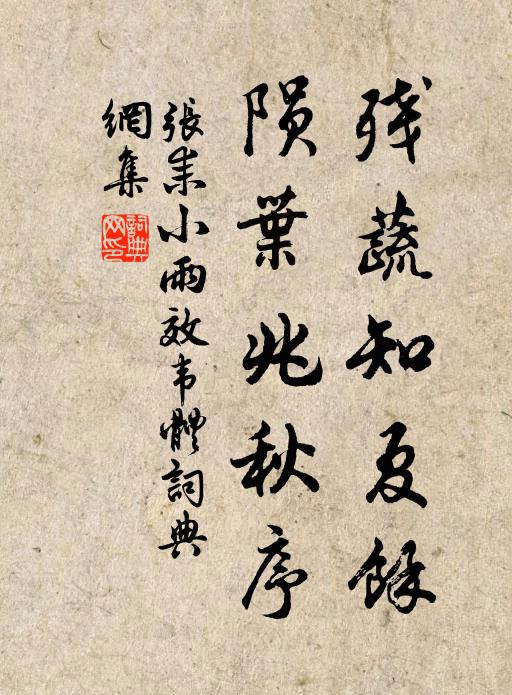 残蔬知夏馀
陨葉兆秋序
張耒小雨效韦體詞典
網集
詞典
网印